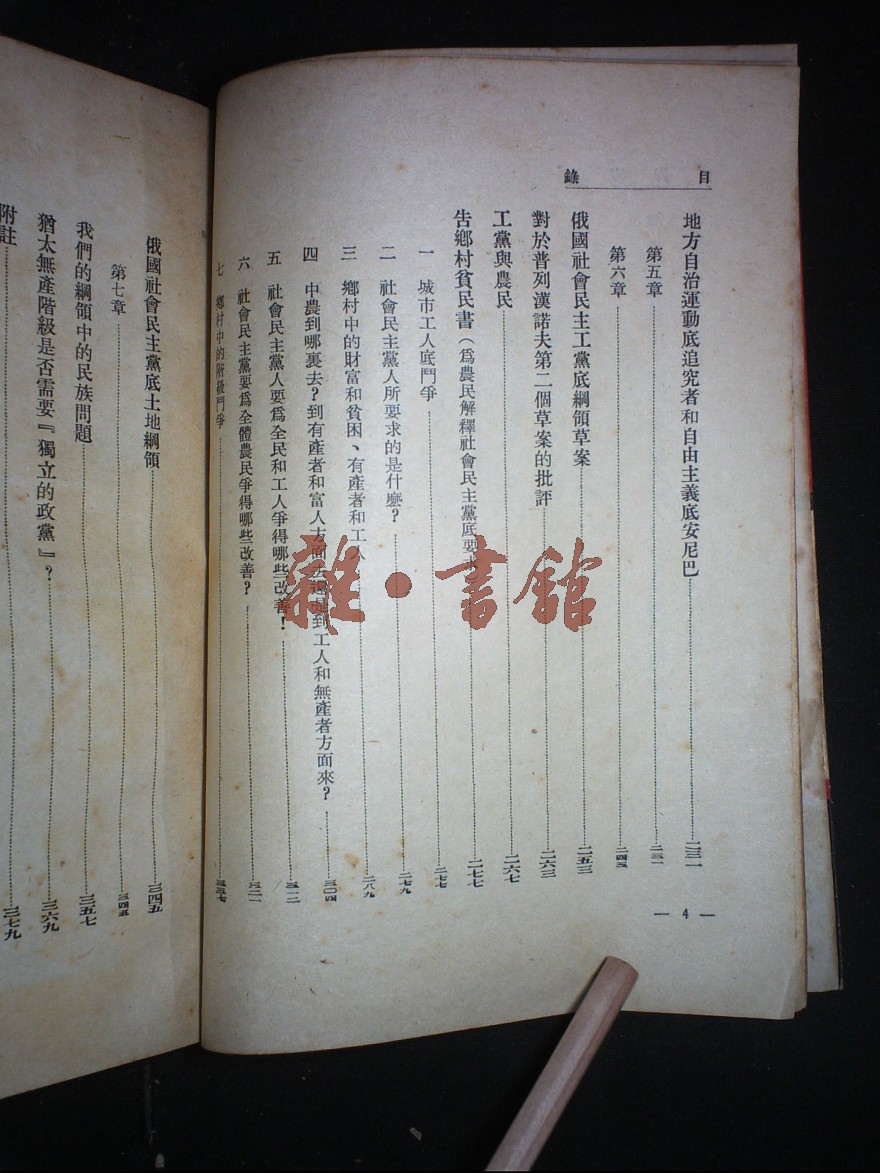 目錄
地方自治運動底追究者和自由主義底安尼巴 二三一
第五章 二三一
第六章 二四五
俄國社會民主工黨底綱領草案 二五三
對於普列漢諾夫第二個草案的批評 二六三
工黨與農民 二六七
告鄉村貧民書(爲農民解釋社會民主黨底要求 二七七
一 城市工人底鬥爭 二七七
二 社會民主黨人所要求的是什麼? 二七九
三 鄉村中的財富和貧困、有產者和工人 二八九
四 中農到哪裏去?到有產者和富人方面去還是到工人和無產者方面來? 三〇四
五 社會民主黨人要爲全民和工人爭得哪些改善! 三一二
六 社會民主黨要爲全體農民爭得哪些改善? 三二一
七 鄉村中的階級鬥爭 三三七
— 4 —
俄國社會民主黨底土地綱領 三四五
第七章 三四五
我們的綱領中的民族問題 三五七
猶太無產階級是否需要『獨立的政黨』? 三六九
附註 三七九
雜·書館